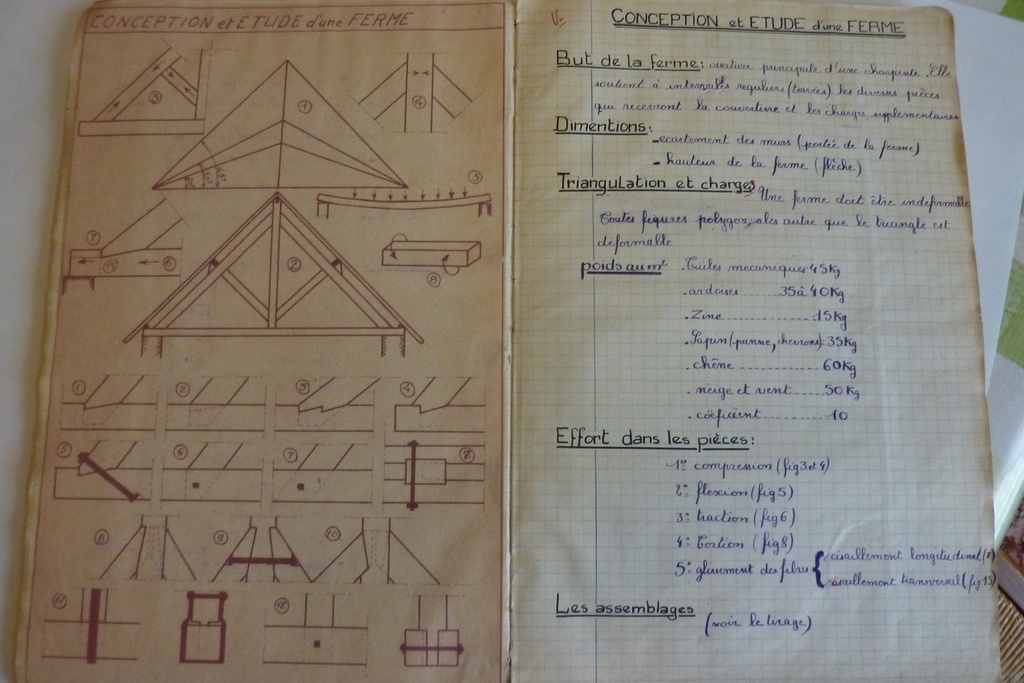 CONCEPTION et ÉTUDE d'une FERME
3
1
4
45°
5
7
6
2
8
1
2
3
4
5
6
7
8
9
10
11
12
V-
CONCEPTION et ETUDE d'une FERME
But de la ferme: ossature principale d'une charpente. Elle
soutient à intervalles reguliers (travées) les diverses pièces
qui recevront la couverture et les charges supplementaires
Dimentions:
- ecartement des murs (portée de la ferme)
- hauteur de la ferme (flèche)
Triangulation et charges Une ferme doit être indeformable
Toutes figures polygonales autre que le triangle est
deformable
poids au m² .Tuiles mecaniques 45Kg
.ardoises ....... 35 à 40Kg
.Zinc ................ 15Kg
.Sapin (panne, chevrons): 35Kg
.chêne ............... 60Kg
.neige et vent ..... 50Kg
.coëficient .......... 10
Effort dans les pièces:
1º compression (fig 3 et 4)
2º flexion (fig 5)
3º traction (fig 6)
4º Tortion (fig 8)
5º glissement des fibres { cisaillement longitudinal (7)
cisaillement transversal (fig 15)
Les assemblages (voir le tirage)